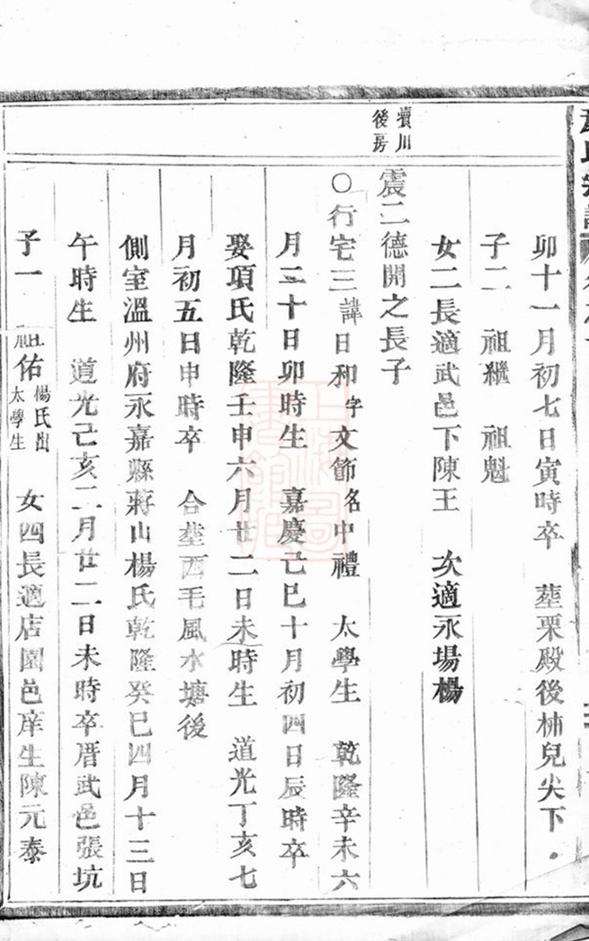 卯十一月初七日寅時卒　塟栗殿後柿兒尖下
子二　祖繼　祖魁
女二長適武邑下陳王　次適永場楊
後房
震二德開之長子
○行宅三諱日和字文節名中禮　太學生　乾隆辛未六
月二十日卯時生　嘉慶己巳十月初四日辰時卒
娶項氏乾隆壬申六月廿二日未時生　道光丁亥七
月初五日申時卒　合塟西毛風水塘後
側室溫州府永嘉縣蔣山楊氏乾隆癸巳四月十三日
午時生　道光己亥二月廿二日未時卒厝武邑張坑
子一　祖佑楊氏出太學生　女四長適店園邑庠生陳元泰